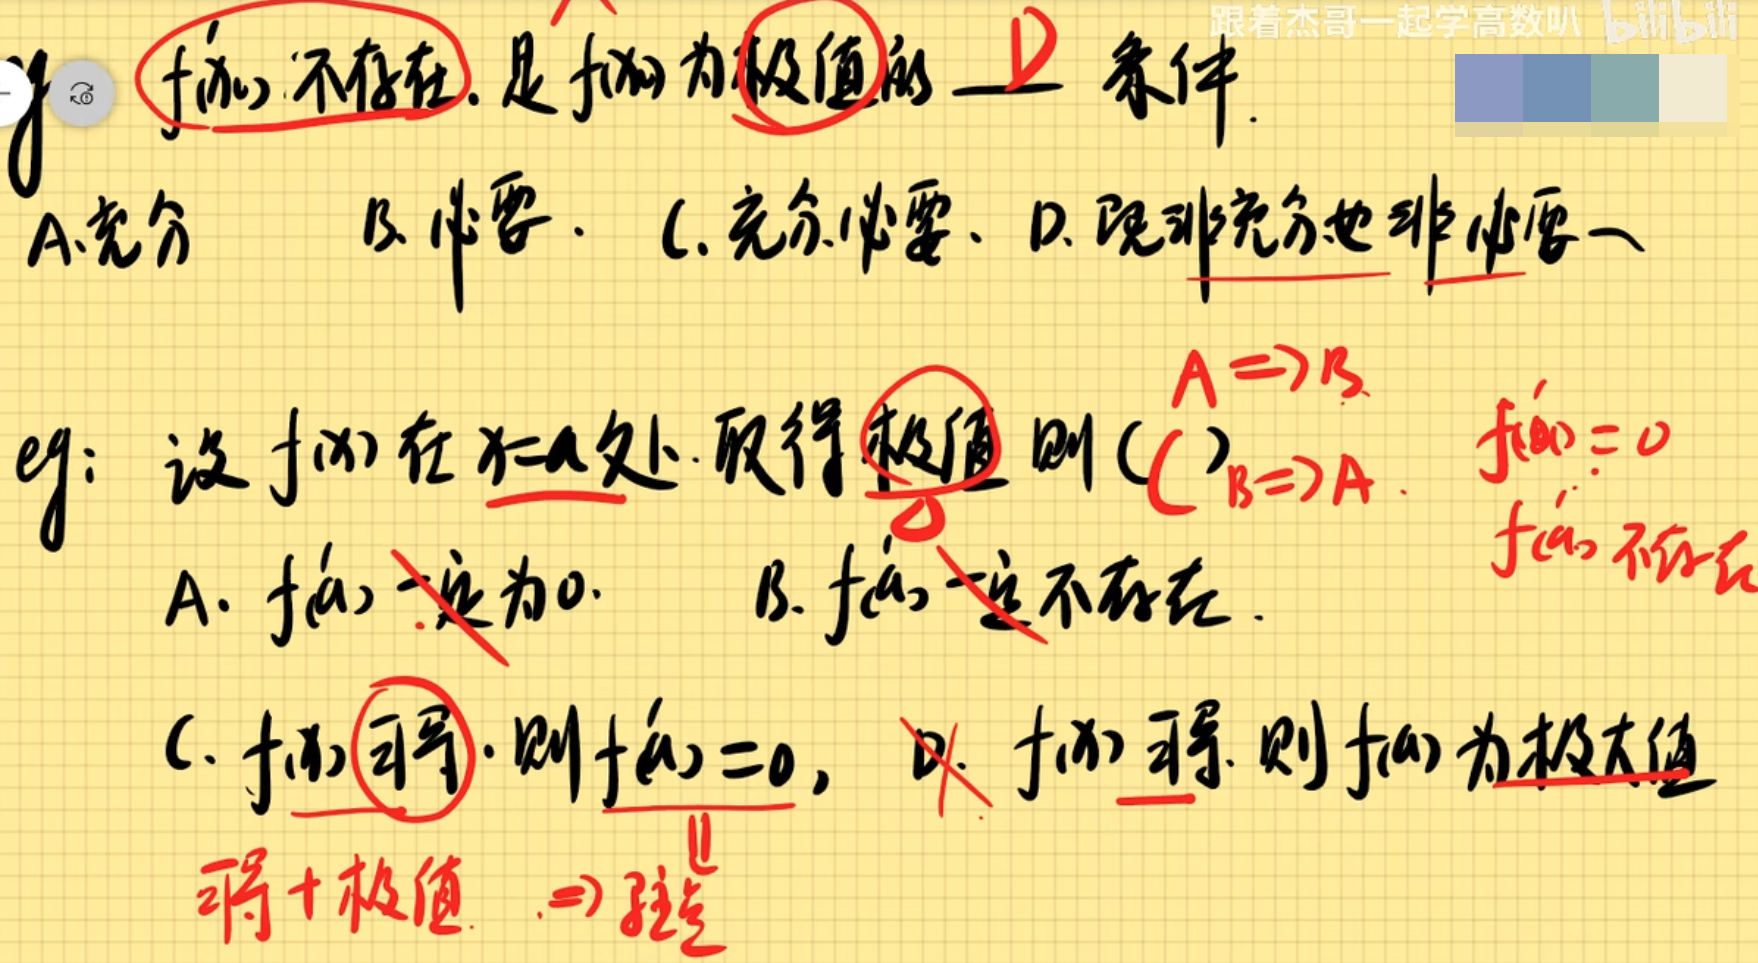 跟着杰哥一起学高数叭 bilibili
eg f'(x₀)不存在.是f(x₀)为极值的 D 条件.
A.充分 B.必要. C.充分必要. D.既非充分也非必要
A=>B
eg: 设f(x)在x=a处.取得极值则( C )
B=>A.
f'(a)=0
f'(a)不存在
A. f'(a)一定为0. B. f'(a)一定不存在.
C. f(x)可导.则f'(a)=0, D. f(x)可导.则f(a)为极大值
可导+极值.=>驻点